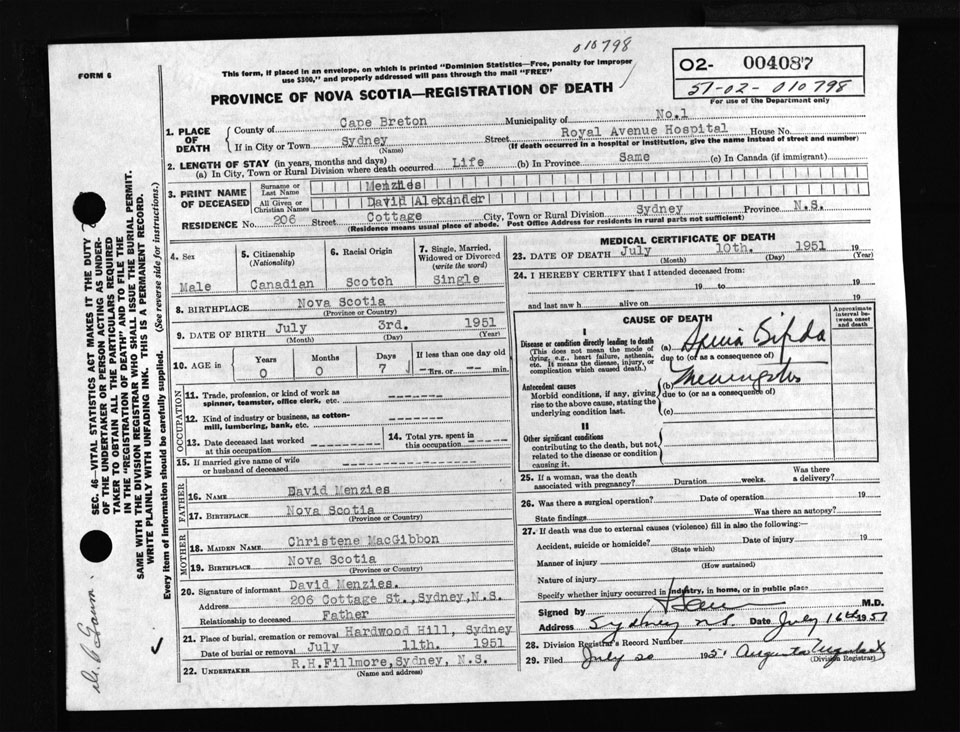 010798
FORM 6
This form, if placed in an envelope, on which is printed "Dominion Statistics—Free, penalty for improper
use $300," and properly addressed will pass through the mail "FREE"
O2- 004087
51-02-010798
For use of the Department only
PROVINCE OF NOVA SCOTIA—REGISTRATION OF DEATH
1. PLACE OF DEATH
County of Cape Breton Municipality of No.1
If in City or Town Sydney Street Royal Avenue Hospital House No.
(Name) (If death occurred in a hospital or institution, give the name instead of street and number)
2. LENGTH OF STAY (in years, months and days)
(a) In City, Town or Rural Division where death occurred Life (b) In Province Same (c) In Canada (if immigrant)
3. PRINT NAME OF DECEASED
Surname or Last Name Menzies
All Given or Christian Names David Alexander
RESIDENCE No. 206 Street Cottage City, Town or Rural Division Sydney Province N.S.
(Residence means usual place of abode. Post Office Address for residents in rural parts not sufficient)
4. Sex
Male
5. Citizenship
(Nationality)
Canadian
6. Racial Origin
Scotch
7. Single, Married,
Widowed or Divorced
(write the word)
Single
8. BIRTHPLACE Nova Scotia
(Province or Country)
9. DATE OF BIRTH July 3rd. 1951
(Month) (Day) (Year)
10. AGE in
Years Months Days If less than one day old
0 0 7 hrs. or min.
OCCUPATION
11. Trade, profession, or kind of work as
spinner, teamster, office clerk, etc.
12. Kind of industry or business, as cotton-
mill, lumbering, bank, etc.
13. Date deceased last worked
at this occupation
14. Total yrs. spent in
this occupation
15. If married give name of wife
or husband of deceased
FATHER
16. NAME David Menzies
17. BIRTHPLACE Nova Scotia
(Province or Country)
MOTHER
18. MAIDEN NAME Christene MacGibbon
19. BIRTHPLACE Nova Scotia
(Province or Country)
20. Signature of informant David Menzies.
Address 206 Cottage St.,Sydney,N.S.
Relationship to deceased Father
21. Place of burial, cremation or removal Hardwood Hill, Sydney
Date of burial or removal July 11th. 1951
22. UNDERTAKER R.H.Fillmore,Sydney, N.S.
(Name and address)
MEDICAL CERTIFICATE OF DEATH
23. DATE OF DEATH July 10th. 1951 19
(Month) (Day) (Year)
24. I HEREBY CERTIFY that I attended deceased from:
19 to 19
and last saw h alive on 19
CAUSE OF DEATH
Approximate interval between onset and death
I
Disease or condition directly leading to death
(This does not mean the mode of
dying, e.g., heart failure, asthenia,
etc. It means the disease, injury, or
complication which caused death.)
(a) Spina Bifida
due to (or as a consequence of)
Antecedent causes
Morbid conditions, if any, giving
rise to the above cause, stating the
underlying condition last.
(b)
due to (or as a consequence of)
(c)
II
Other significant conditions
contributing to the death, but not
related to the disease or condition
causing it.
25. If a woman, was the death
associated with pregnancy? Duration weeks. Was there
a delivery?
26. Was there a surgical operation? Date of operation 19
State findings Was there an autopsy?
27. If death was due to external causes (violence) fill in also the following:—
Accident, suicide or homicide? Date of injury 19
(State which)
Manner of injury
(How sustained)
Nature of injury
Specify whether injury occurred in industry, in home, or in public place
Signed by M.D.
Address Sydney N.S. Date July 16th 1951
28. Division Registrar's Record Number
29. Filed July 20 1951 Augusta
(Division Registrar)
SEC. 46—VITAL STATISTICS ACT MAKES IT THE DUTY
OF THE UNDERTAKER OR PERSON ACTING AS UNDER-
TAKER TO OBTAIN ALL THE PARTICULARS REQUIRED
IN THE "REGISTRATION OF DEATH" AND TO FILE THE
SAME WITH THE DIVISION REGISTRAR WHO SHALL ISSUE THE BURIAL PERMIT.
WRITE PLAINLY WITH UNFADING INK. THIS IS A PERMANENT RECORD.
Every item of information should be carefully supplied. (See reverse side for instructions.)